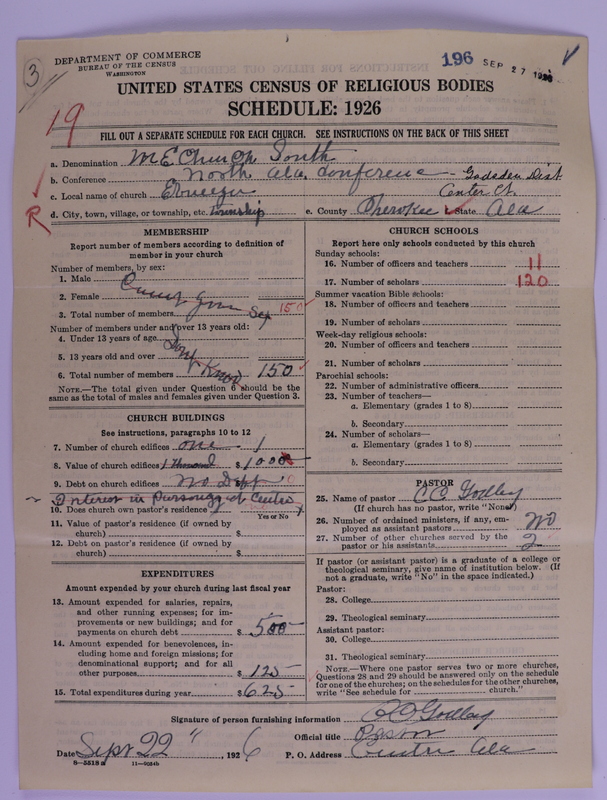 3
DEPARTMENT OF COMMERCE
BUREAU OF THE CENSUS
WASHINGTON
196 SEP 27 1926
UNITED STATES CENSUS OF RELIGIOUS BODIES
SCHEDULE: 1926
19
FILL OUT A SEPARATE SCHEDULE FOR EACH CHURCH. SEE INSTRUCTIONS ON THE BACK OF THIS SHEET
a. Denomination M E Church South
b. Conference North Ala. Conference - Gadsden Dist
c. Local name of church Ebneezer Center Ct.
R
d. City, town, village, or township, etc. township e. County Cherokee State Ala
MEMBERSHIP
Report number of members according to definition of
member in your church
Number of members, by sex:
1. Male
2. Female
3. Total number of members Sep 150
Number of members under and over 13 years old:
4. Under 13 years of age Dont
5. 13 years old and over Know
6. Total number of members 150
NOTE.—The total given under Question 6 should be the
same as the total of males and females given under Question 3.
CHURCH BUILDINGS
See instructions, paragraphs 10 to 12
7. Number of church edifices one - 1
8. Value of church edifices 1 thousand $ 1000
9. Debt on church edifices No Dept 0
Interest in Parsonage at Centre
10. Does church own pastor's residence?
Yes or No
11. Value of pastor's residence (if owned by
church) $
12. Debt on pastor's residence (if owned by
church) $
EXPENDITURES
Amount expended by your church during last fiscal year
13. Amount expended for salaries, repairs,
and other running expenses; for im-
provements or new buildings; and for
payments on church debt $ 500
14. Amount expended for benevolences, in-
cluding home and foreign missions; for
denominational support; and for all
other purposes $ 125
15. Total expenditures during year $ 625
CHURCH SCHOOLS
Report here only schools conducted by this church
Sunday schools:
16. Number of officers and teachers 11
17. Number of scholars 120
Summer vacation Bible schools:
18. Number of officers and teachers
19. Number of scholars
Week-day religious schools:
20. Number of officers and teachers
21. Number of scholars
Parochial schools:
22. Number of administrative officers
23. Number of teachers—
a. Elementary (grades 1 to 8)
b. Secondary
24. Number of scholars—
a. Elementary (grades 1 to 8)
b. Secondary
PASTOR
25. Name of pastor C C Godbey
(If church has no pastor, write "None")
26. Number of ordained ministers, if any, em-
ployed as assistant pastors No
27. Number of other churches served by the
pastor or his assistants 2
If pastor (or assistant pastor) is a graduate of a college or
theological seminary, give name of institution below. (If
not a graduate, write "No" in the space indicated.)
Pastor:
28. College
29. Theological seminary
Assistant pastor:
30. College
31. Theological seminary
NOTE.—Where one pastor serves two or more churches,
Questions 28 and 29 should be answered only on the schedule
for one of the churches; on the schedules for the other churches,
write "See schedule for church."
Signature of person furnishing information C C Godbey
Official title Pastor
Date Sept 22 ", 1926 P. O. Address Centre Ala
8—5518a 11—9034b